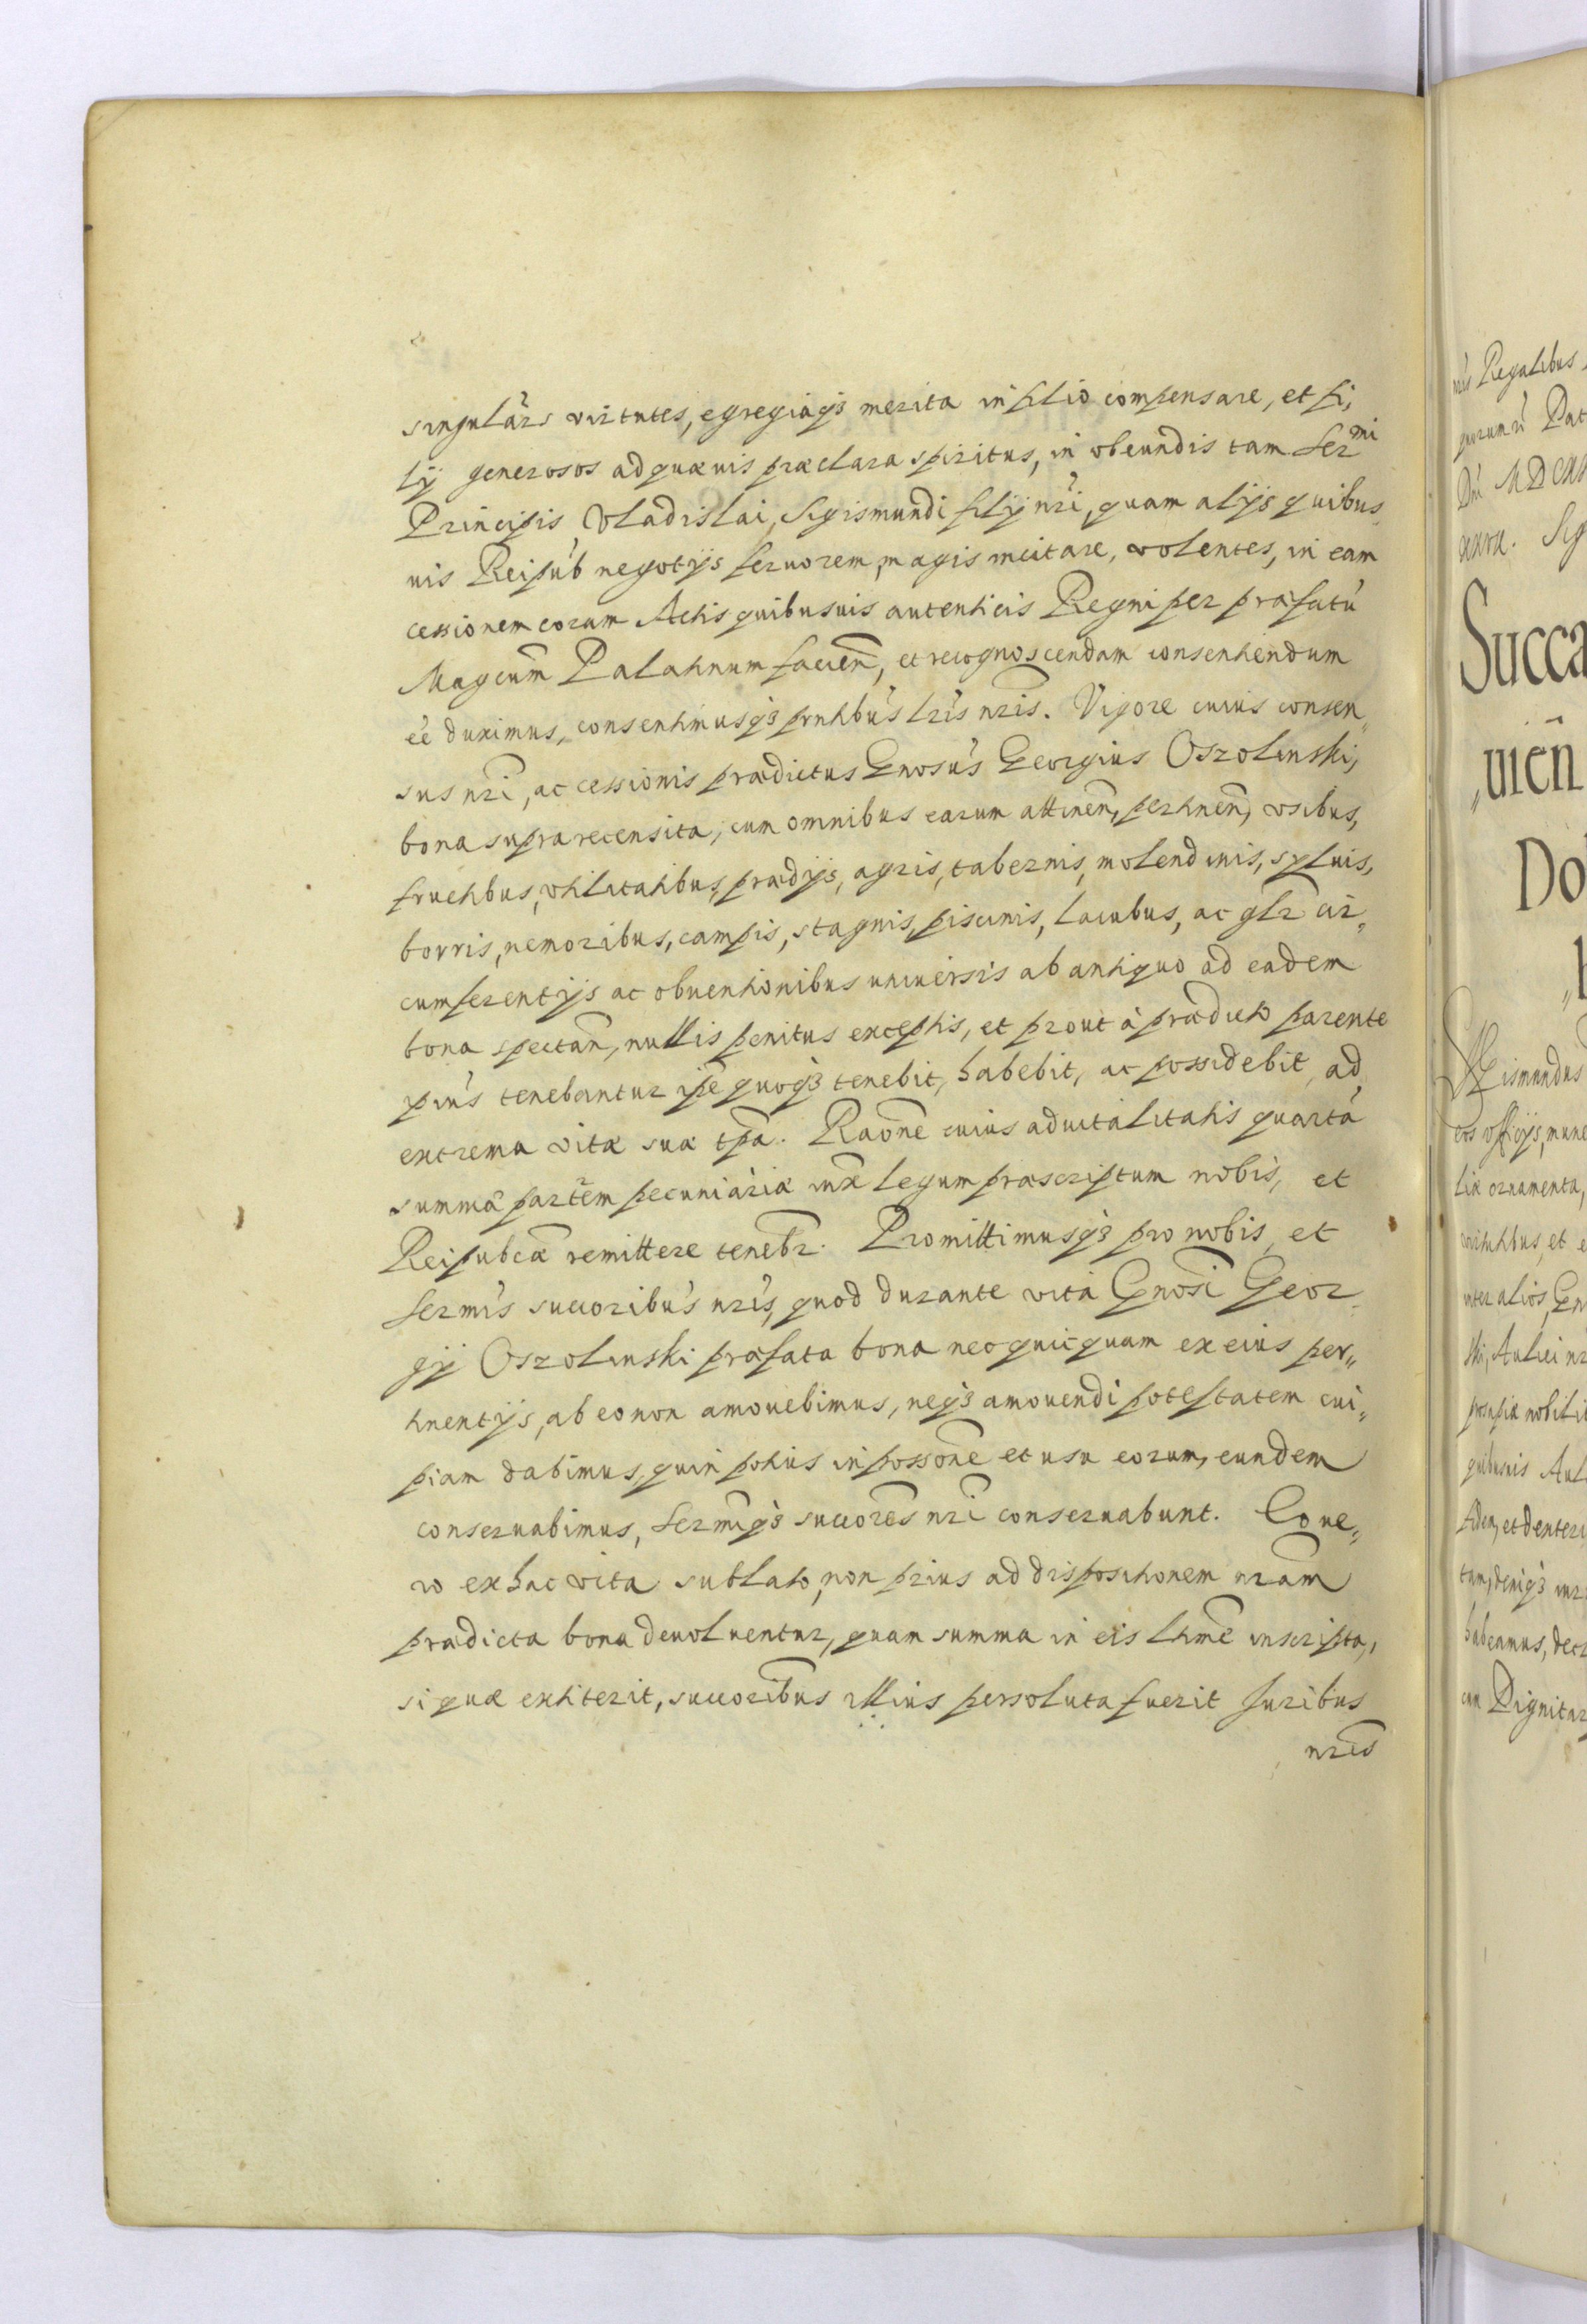 singulārs virtutes, egregiasq3 merita in filio compensare, et fi,
lij generosos ad quæuis præclara spiritus, in obeundis tam Ser^mi
Principis Vladislai Sigismundi filij nr̃i, quam alijs quibus„
uis Reipub negotijs feruorem, magis incitare, volentes, in eam
cessionem coram Actis quibusuis autenticis Regni per præfatū
Magcum̄ Palatinum facien̄, et recognoscendam consentiendum
eē duximus, consentimusq3 pr̃ntibus lr̃is nr̃is. Vigore cuius consen„
sus nr̃i, ac cessionis prædictus Gnosus Georgius Oszolinski,
bona supra recensita, cum omnibus earum attinen̄, pertinen̄, vsibus,
fructibus, vtilitatibus, prædijs, agris, tabernis, molendinis, syluis,
borris, nemoribus, campis, stagnis, piscinis, lacubus, ac glr̃ cir„
cumferentijs ac obuentionibus vniuersis ab antiquo ad eadem
bona spectan̄, nullis penitus exceptis, et prout à prædicto parente
ipius tenebantur ipẽ quoq3 tenebit, habebit, ac possidebit, ad
extrema vitæ suæ tp̃a. Raonē cuius aduitalitatis quartā
summā partem pecuniariæ iux̃ legum præscriptum nobis, et
Reipubcæ remittere tenebr̃. Promittimusq3 pro nobis, et
Sermis succoribus nr̃is, quod durante vita Gnosi Geor„
gij Oszolinski præfata bona nec quicquam ex eius per„
tinentijs, ab eo non amouebimus, neq3 amouendi potestatem cui„
piam dabimus, quin potius in possonē et usu eorum, eundem
conseruabimus, Sermiq3 succores nr̃i conseruabunt. Eo ve„
ro ex hac vita sublato, non prius ad dispositionem nr̃am
prædicta bona deuoluentur, quam summa in eis ltmẽ inscripta,
si quæ extiterit, succoribus illius persoluta fuerit Juribus
nr̃is
nīs Regalibus
Dni MDCXX
Sig
Succa
„uien
Do
Sigismundus
eos officijs, mune
liæ ornamenta,
virtutibus, et e
inter alios, Gn
ski, Aulici nr̃
prosapiæ nobilit
quibusuis Aul
fidem, et dexteri
tum, deniq3 iur
habeamus, decr
cum Dignitar